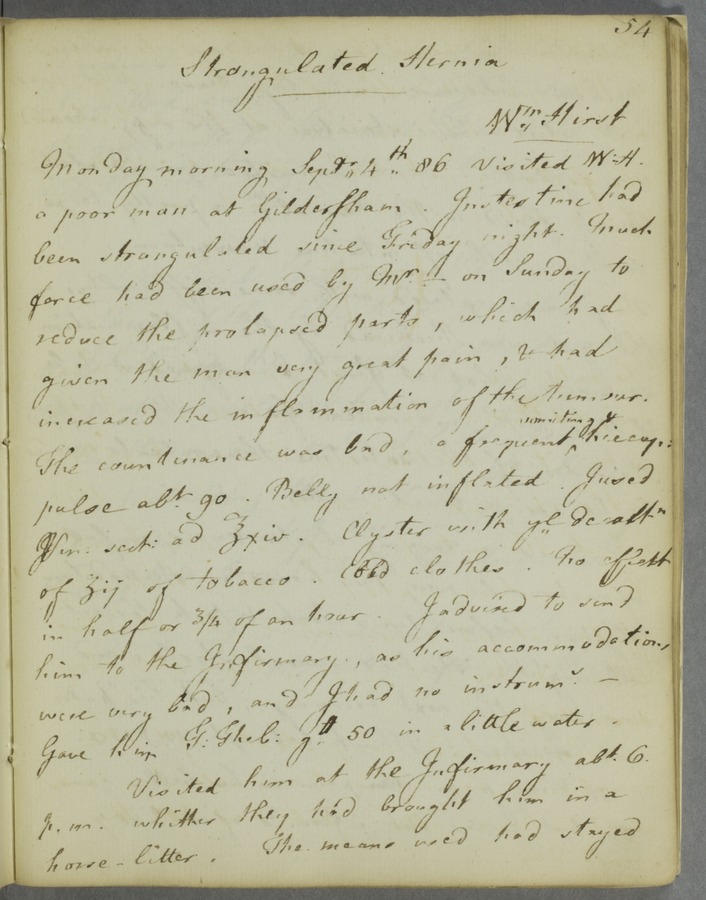 54
Strangulated Hernia
Wm. Hirst
Monday morning Septr. 4th. 86 visited W:H.
a poor man at Gildersham. Intestine had
been strangulated since Friday night. Much
force had been used by Mr — on Sunday to
reduce the prolapsed parts, which had
given the man very great pain, & had
increased the inflammation of the tumour.
The countenance was bad, a frequent vomiting & hiccup:
pulse abt. 90. Belly not inflated. I used
Ven: sect: ad ℥xiv. Clyster with ye decoctn
of ʒij of tobacco. Cold clothes. No effect
in half or 3/4 of an hour. I advised to send
him to the Infirmary, as his accommodations
were very bad, and I had no instrumts. —
Gave him G: Theb: gtt 50 in a little water.
Visited him at the Infirmary abt. 6.
p.m. whither they had brought him in a
horse-litter. The means used had stayed